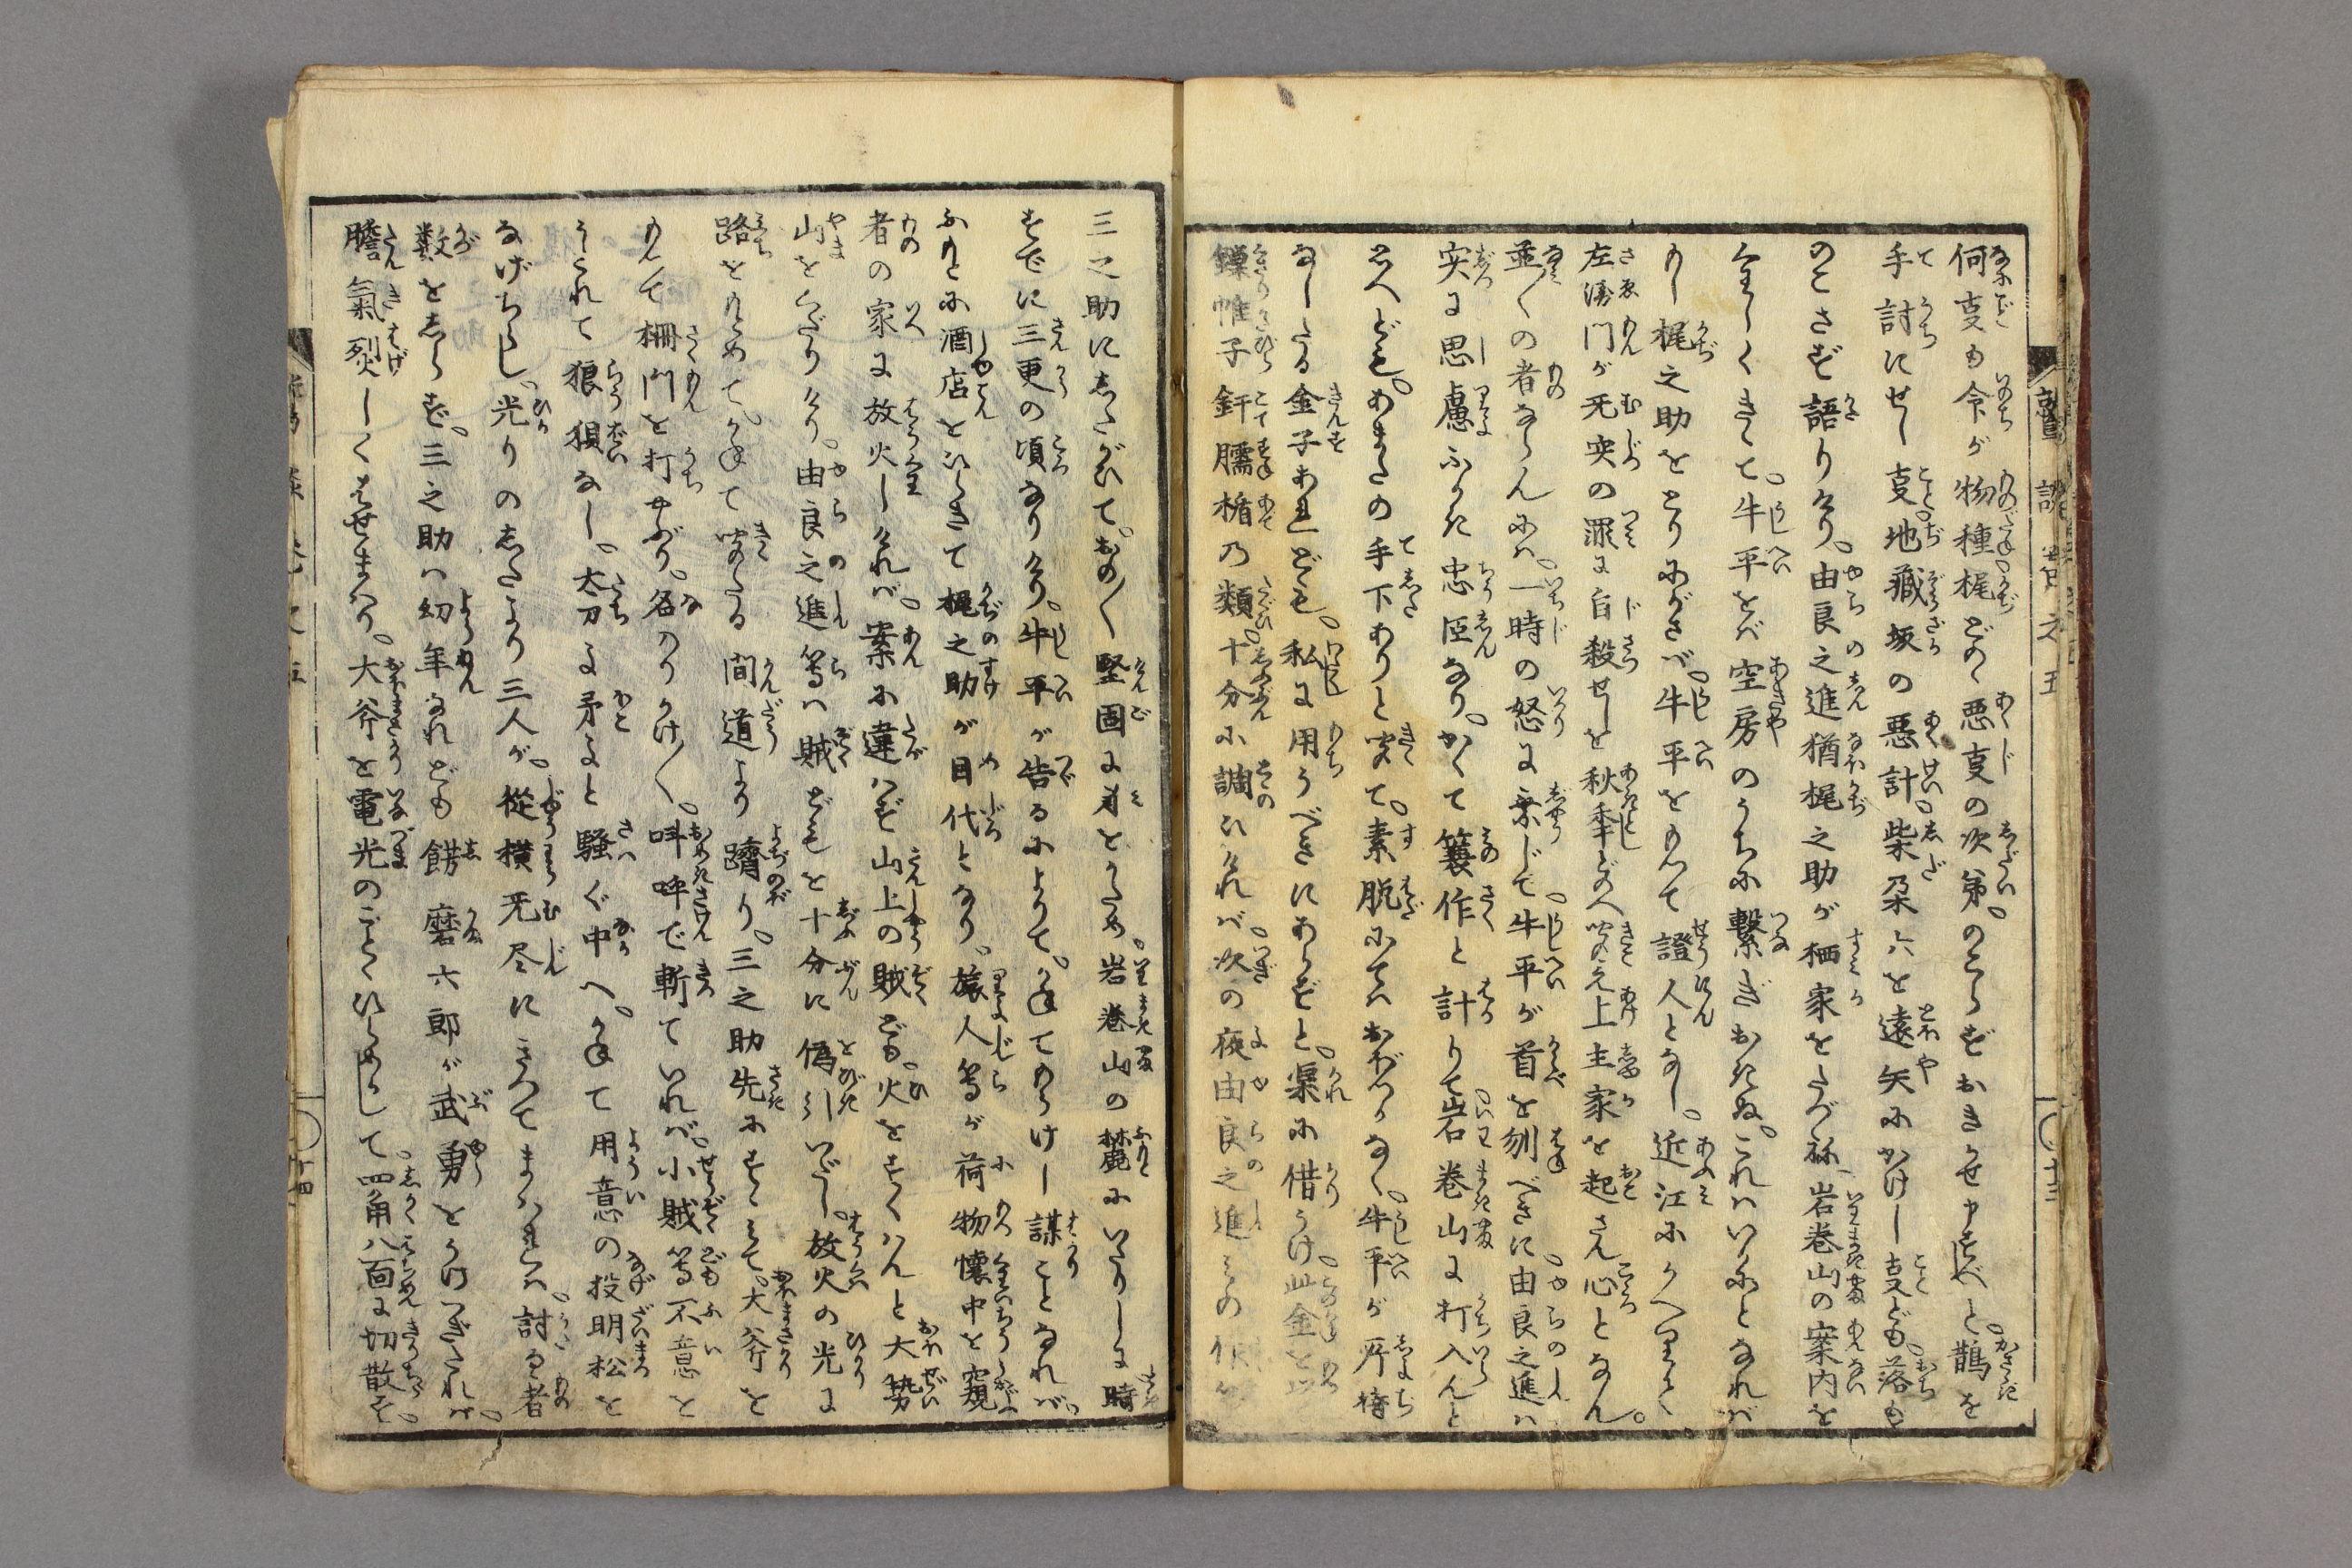 何支も令が物種梶どの〻悪支の次第。のこらずおきかせ申すべしと。鵲を
手討にせし支。地蔵坂の悪計。柴朶六を遠矢にかけし支ども。落も
のこさず語りけり。由良之進猶梶之助が栖家をたづね。岩巻山の案内を
くはしくきゝて。牛平をば空房のうちに繋ぎおきぬ。これはいかにとなれば
もし梶之助をとりにがさば。牛平をもつて證人となし。近江にかへりて
左衛門が无実の罪に自殺せしを秋季どのへ聞え上主家を起さん心となん。
並〳〵の者ならんには。一時の怒に乗じて。牛平が首を刎べきに。由良之進は
実に思慮ふかき忠臣なり。かくて簔作と計りて。岩巻山に打入んと
思へども。あまたの手下ありと聞て。素脱にてはおぼつかなく。牛平が所持
なしたる金子あれども。私に用うべきにあらずと。渠に借うけ。此金を以
鏁帷子釬臑楯の類。十分に調ひければ。次の夜由良之進
三之助にしたがひて。おの〳〵堅固に身をかため。岩巻山の麓にいたりしに時
すでに三更の頃なりけり。牛平が告るによりて。かねてまうけし謀ことなれば。
ふもとに酒店をひらきて梶之助が目代となり。旅人等が荷物懐中を窺
者の家に放火しければ。案に違はず山上の賊ども。火をすくはんと大勢
山をくだりけり。由良之進等は賊どもを十分に偽引いだし。放火の光に
路をもとめて。かねて聞たる間道より躋り。三之助先にすゝみて。大斧を
もつて柵門を打やぶり。名のりかけ〳〵。叫呼で斬ていれば。小賊等不意を
うたれて狼狽なし。太刀よ矛よと騒ぐ中へ。かねて用意の投明松を
なげちらし。光りの下より三人が。従横无尽にきつてまはれば。討るゝ者
数をしらず。三之助は幼年なれども餝磨六郎が武勇をうけつぎたれば。
膽氣烈しくはせまはり。大斧を電光のごとくひらめかして。四角八面に切散す。